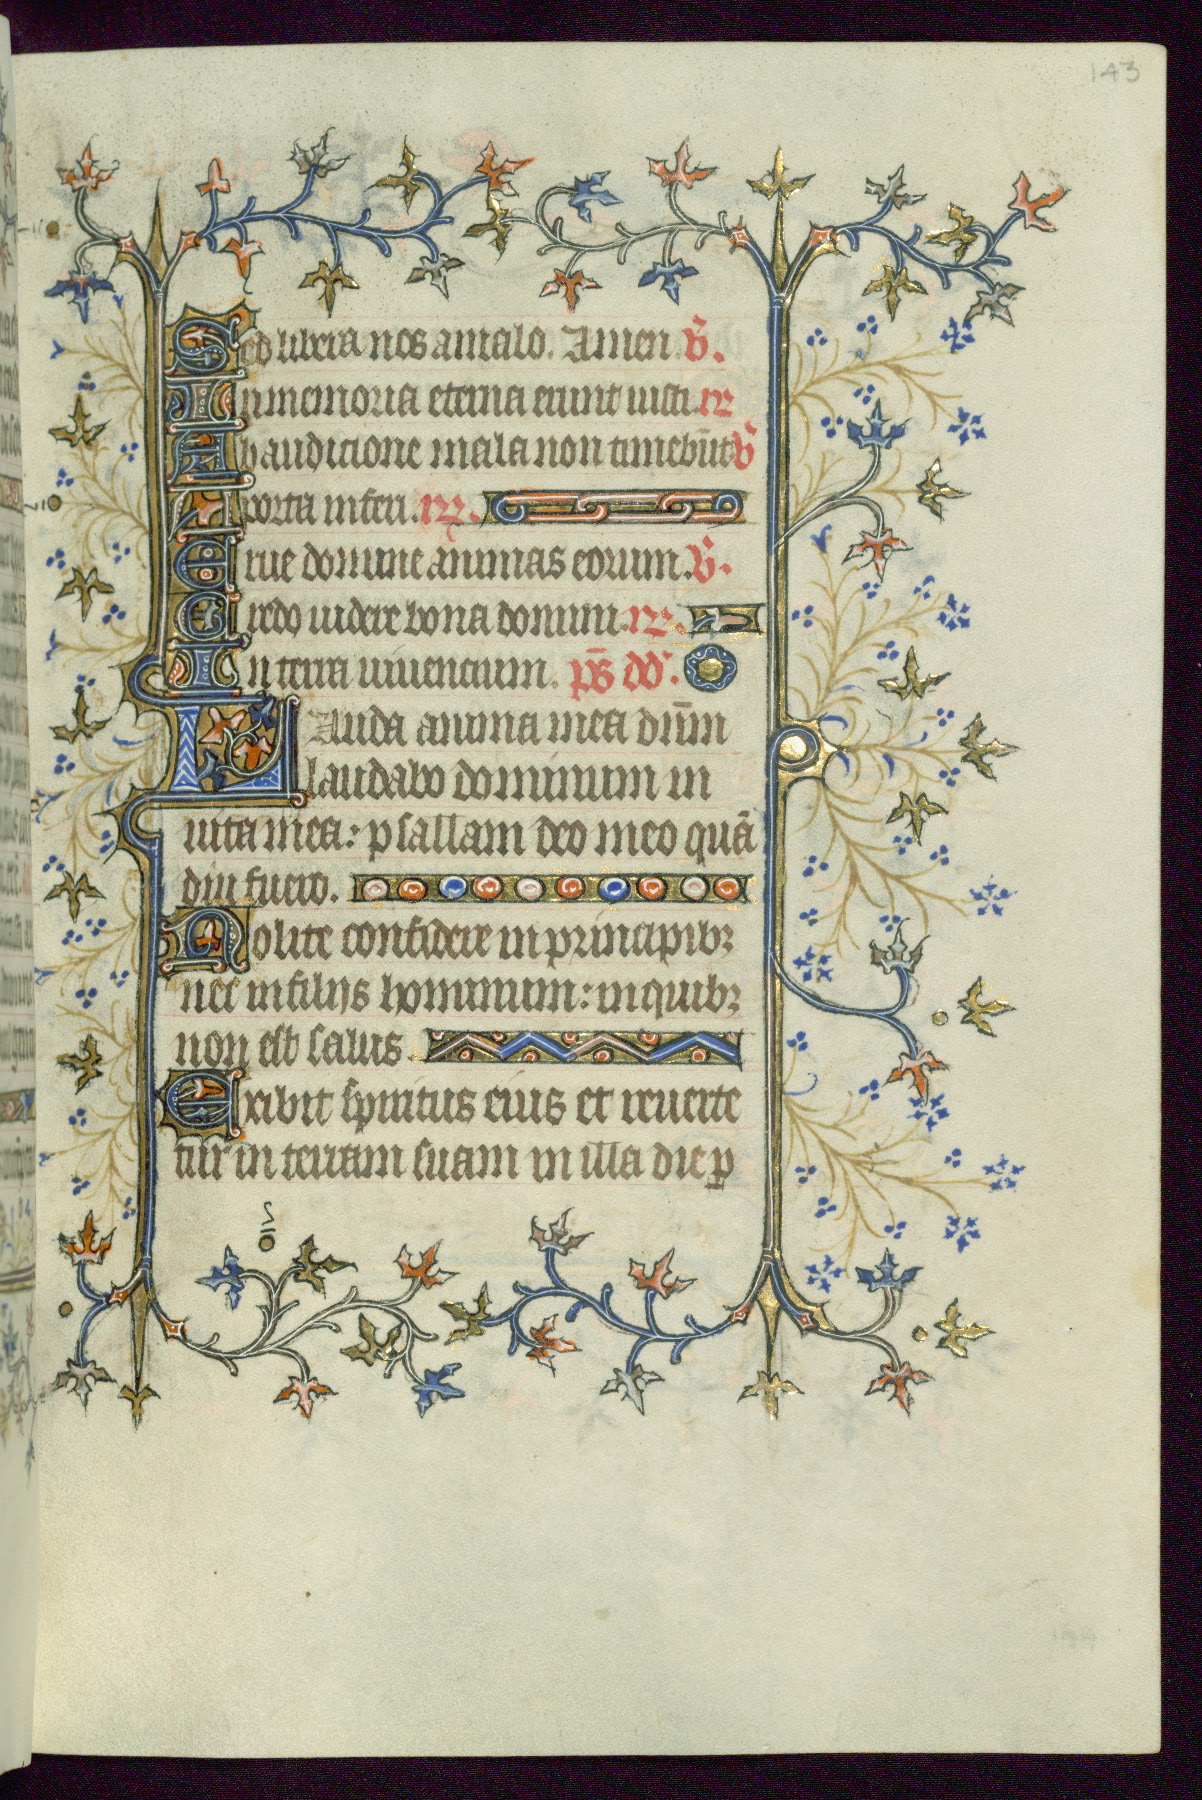 143
Sed libera nos amalo. Amen. v̄.
In memoria eterna erunt iusti. r̄
Ab audicione mala non timebūt v̄
A porta inferi. r̄.
Erue domine animas eorum. v̄.
Credo uidere bona domini. r̄.
In terra uiuencium. p̄s dd̄.
Lauda anima mea dn̄m
laudabo dominum in
uita mea: psallam deo meo quā
diu fuero.
Nolite confidere in principibꝫ
nec in filijs hominum: in quibꝫ
non est salus
Exibit spiritus eius et reuerte
tur in terram suam in illa die ꝑ